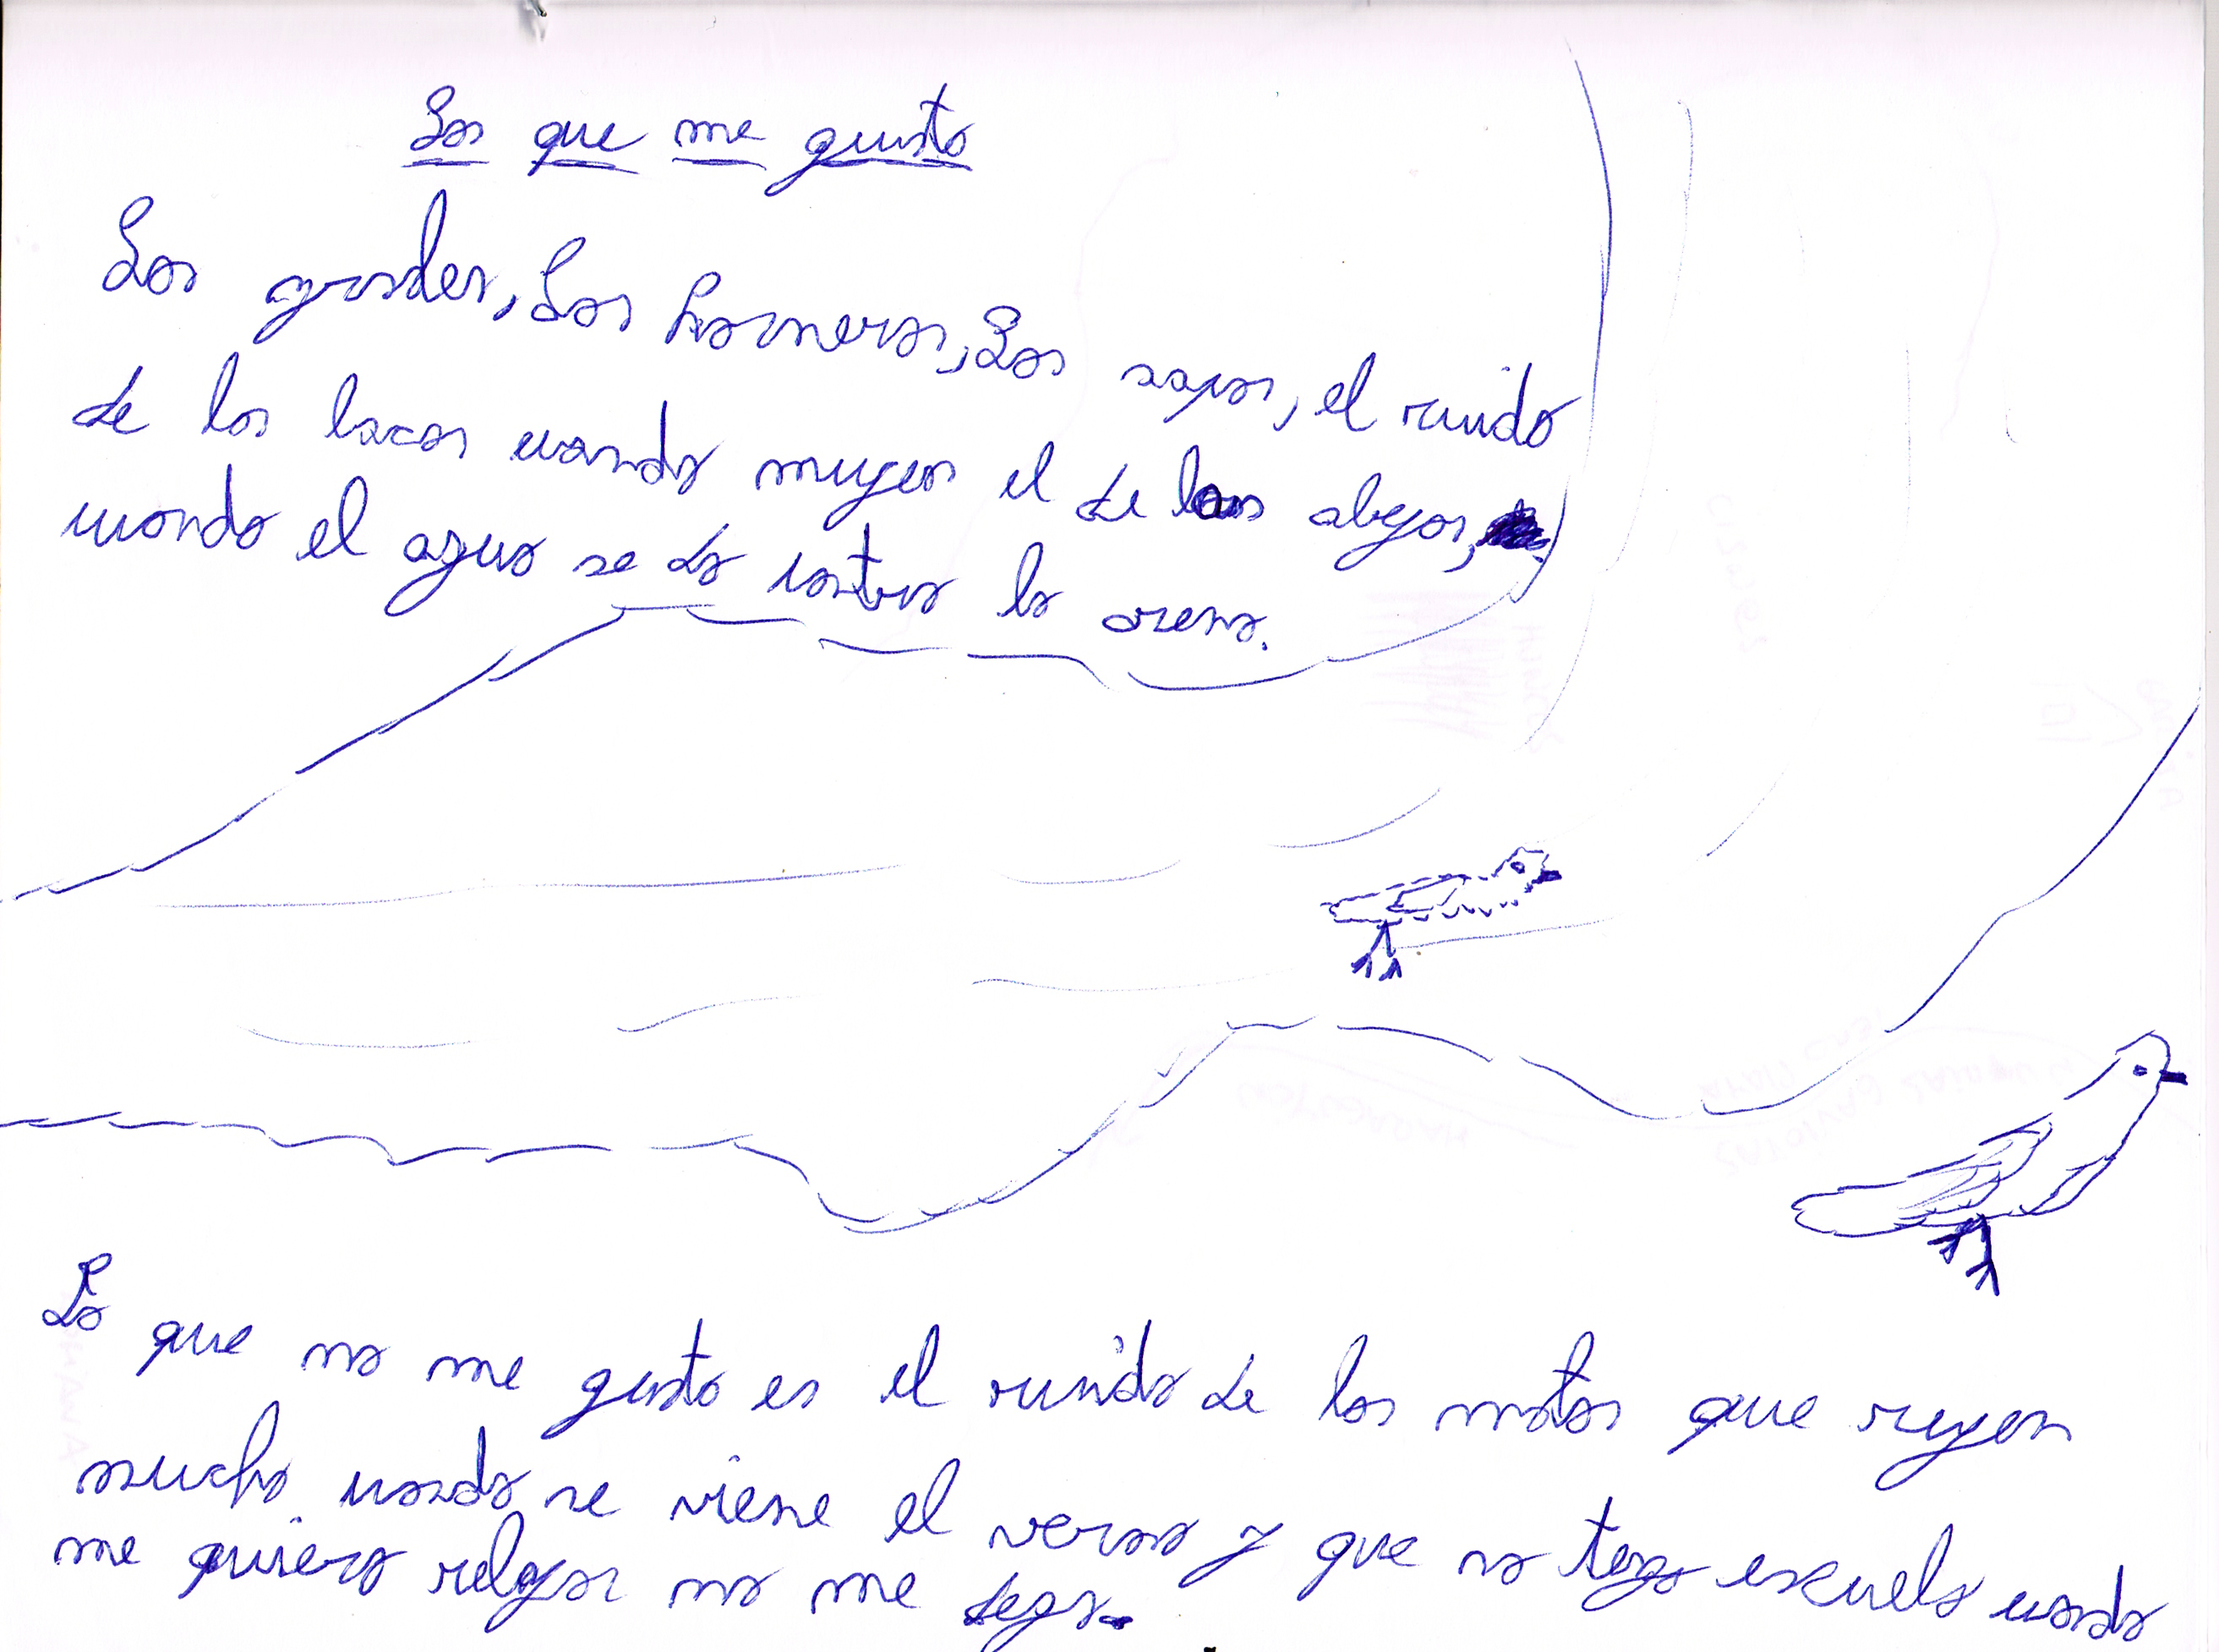 Los que me gusta
Los verdes, Los horneros, Los sapos, el ruido
de las bacas cuando mugen el de las abejas,
cuando el agua se da contra la arena.
Lo que no me gusta es el ruido de las motos que rugen
mucho cuando se viene el verano y que no tengo escuela cuando
me quiero relajar no me deja.